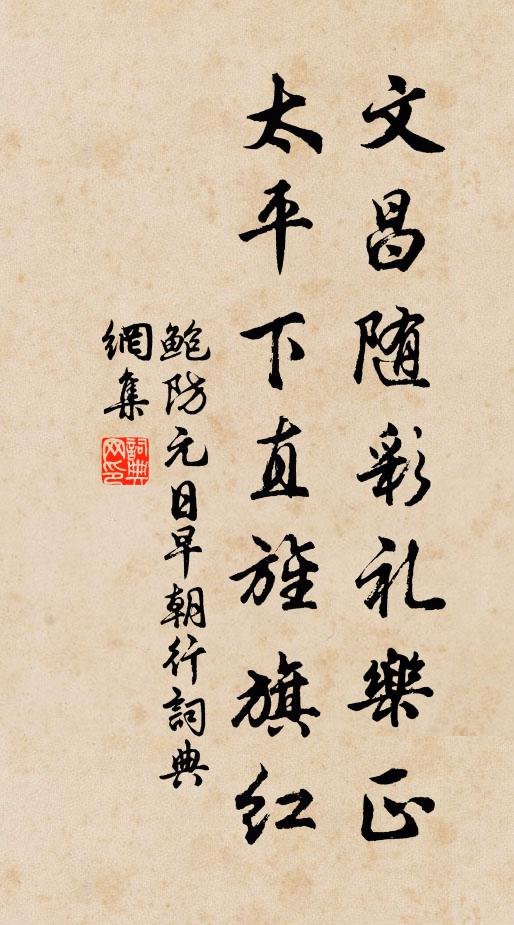 文昌随彩礼樂正
太平下直旌旗紅
鲍防元日早朝行詞典
網集
詞典网印